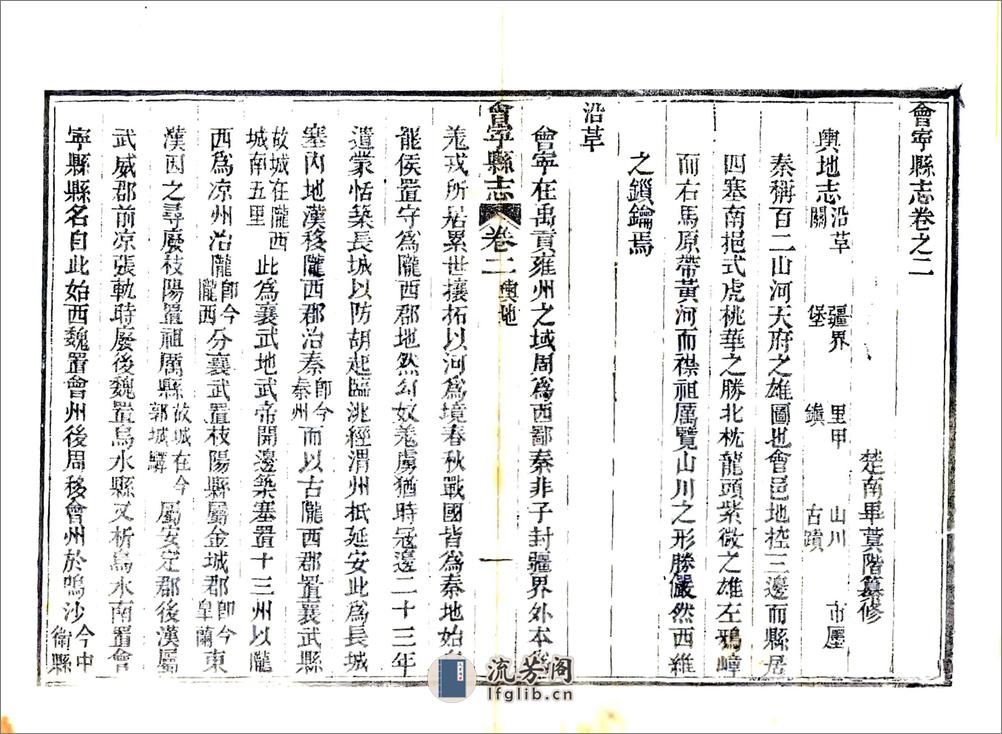 會寧縣志卷之二
楚南畢蓂階纂修
輿地志 沿革 疆界 里甲 山川 市廛
關 堡 鎮 古蹟
秦稱百二山河天府之雄圖也會邑地控三邊而縣居
四塞南挹式虎桃華之勝北枕龍頭紫微之雄左鴉嶂
而右馬原帶黃河而襟祖厲覽山川之形勝儼然西維
之鎖鑰焉
沿革
會寧在禹貢雍州之域周為西鄙秦非子封疆界外本
羗戎所居累世攘拓以河為境春秋戰國皆為秦地始
會寧縣志 卷二 輿地 一
罷侯置守為隴西郡地然匈奴羗虜猶時寇邊二十三年
遣蒙恬築長城以防胡起臨洮經渭州抵延安此為長城
塞內地漢移隴西郡治秦即今秦州而以古隴西郡置襄武縣
故城在隴西城南五里此為襄武地武帝開邊築塞置十三州以隴
西為凉州治隴即今隴西分襄武置枝陽縣屬金城郡即今皐蘭東
漢因之尋廢枝陽置祖厲縣故城在今郭城驛屬安定郡後漢屬
武威郡前凉張軌時廢後魏置烏水縣又析烏水南置會
寧縣縣名自此始西魏置會州後周移會州於鳴沙今中衛縣
流芳閣
lfglib.cn